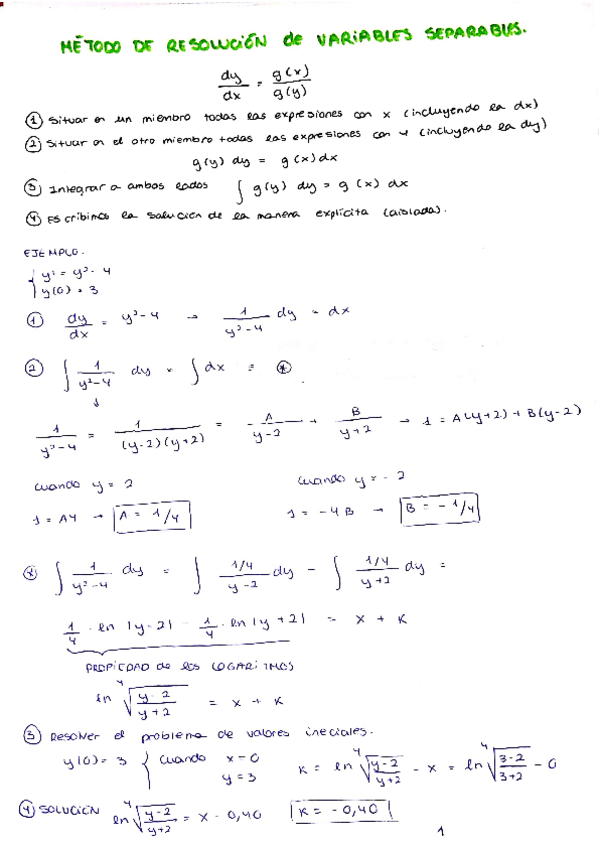 MÉTODO DE RESOLUCIÓN de VARIABLES SEPARABLES.
dy/dx = g(x)/g(y)
① Situar en un miembro todas las expresiones con x (incluyendo la dx)
② Situar en el otro miembro todas las expresiones con y (incluyendo la dy)
g(y) dy = g(x)dx
③ Integrar a ambos lados ∫ g(y) dy = g(x) dx
④ Escribimos la solución de la manera explícita (aislada).
EJEMPLO.
{ y' = y² - 4
y(0) = 3
① dy/dx = y² - 4 → 1/(y² - 4) dy = dx
② ∫ 1/(y² - 4) dy = ∫ dx = ⊛
↓
1/(y² - 4) = 1/((y-2)(y+2)) = A/(y-2) + B/(y+2) → 1 = A(y+2) + B(y-2)
Cuando y = 2 Cuando y = -2
1 = A4 → A = 1/4 1 = -4B → B = -1/4
⊛ ∫ 1/(y² - 4) dy = ∫ (1/4)/(y-2) dy - ∫ (1/4)/(y+2) dy =
1/4 · ln |y-2| - 1/4 · ln |y+2| = x + K
PROPIEDAD de los LOGARITMOS
ln ⁴√((y-2)/(y+2)) = x + K
③ Resolver el problema de valores iniciales.
y(0) = 3 { Cuando x = 0 K = ln ⁴√((y-2)/(y+2)) - x = ln ⁴√((3-2)/(3+2)) - 0
y = 3
④ SOLUCIÓN ln ⁴√((y-2)/(y+2)) = x - 0,40 K = -0,40
1